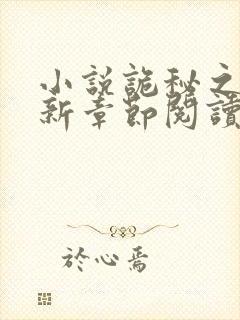 小説詭秘之
新章節閱讀
於心焉